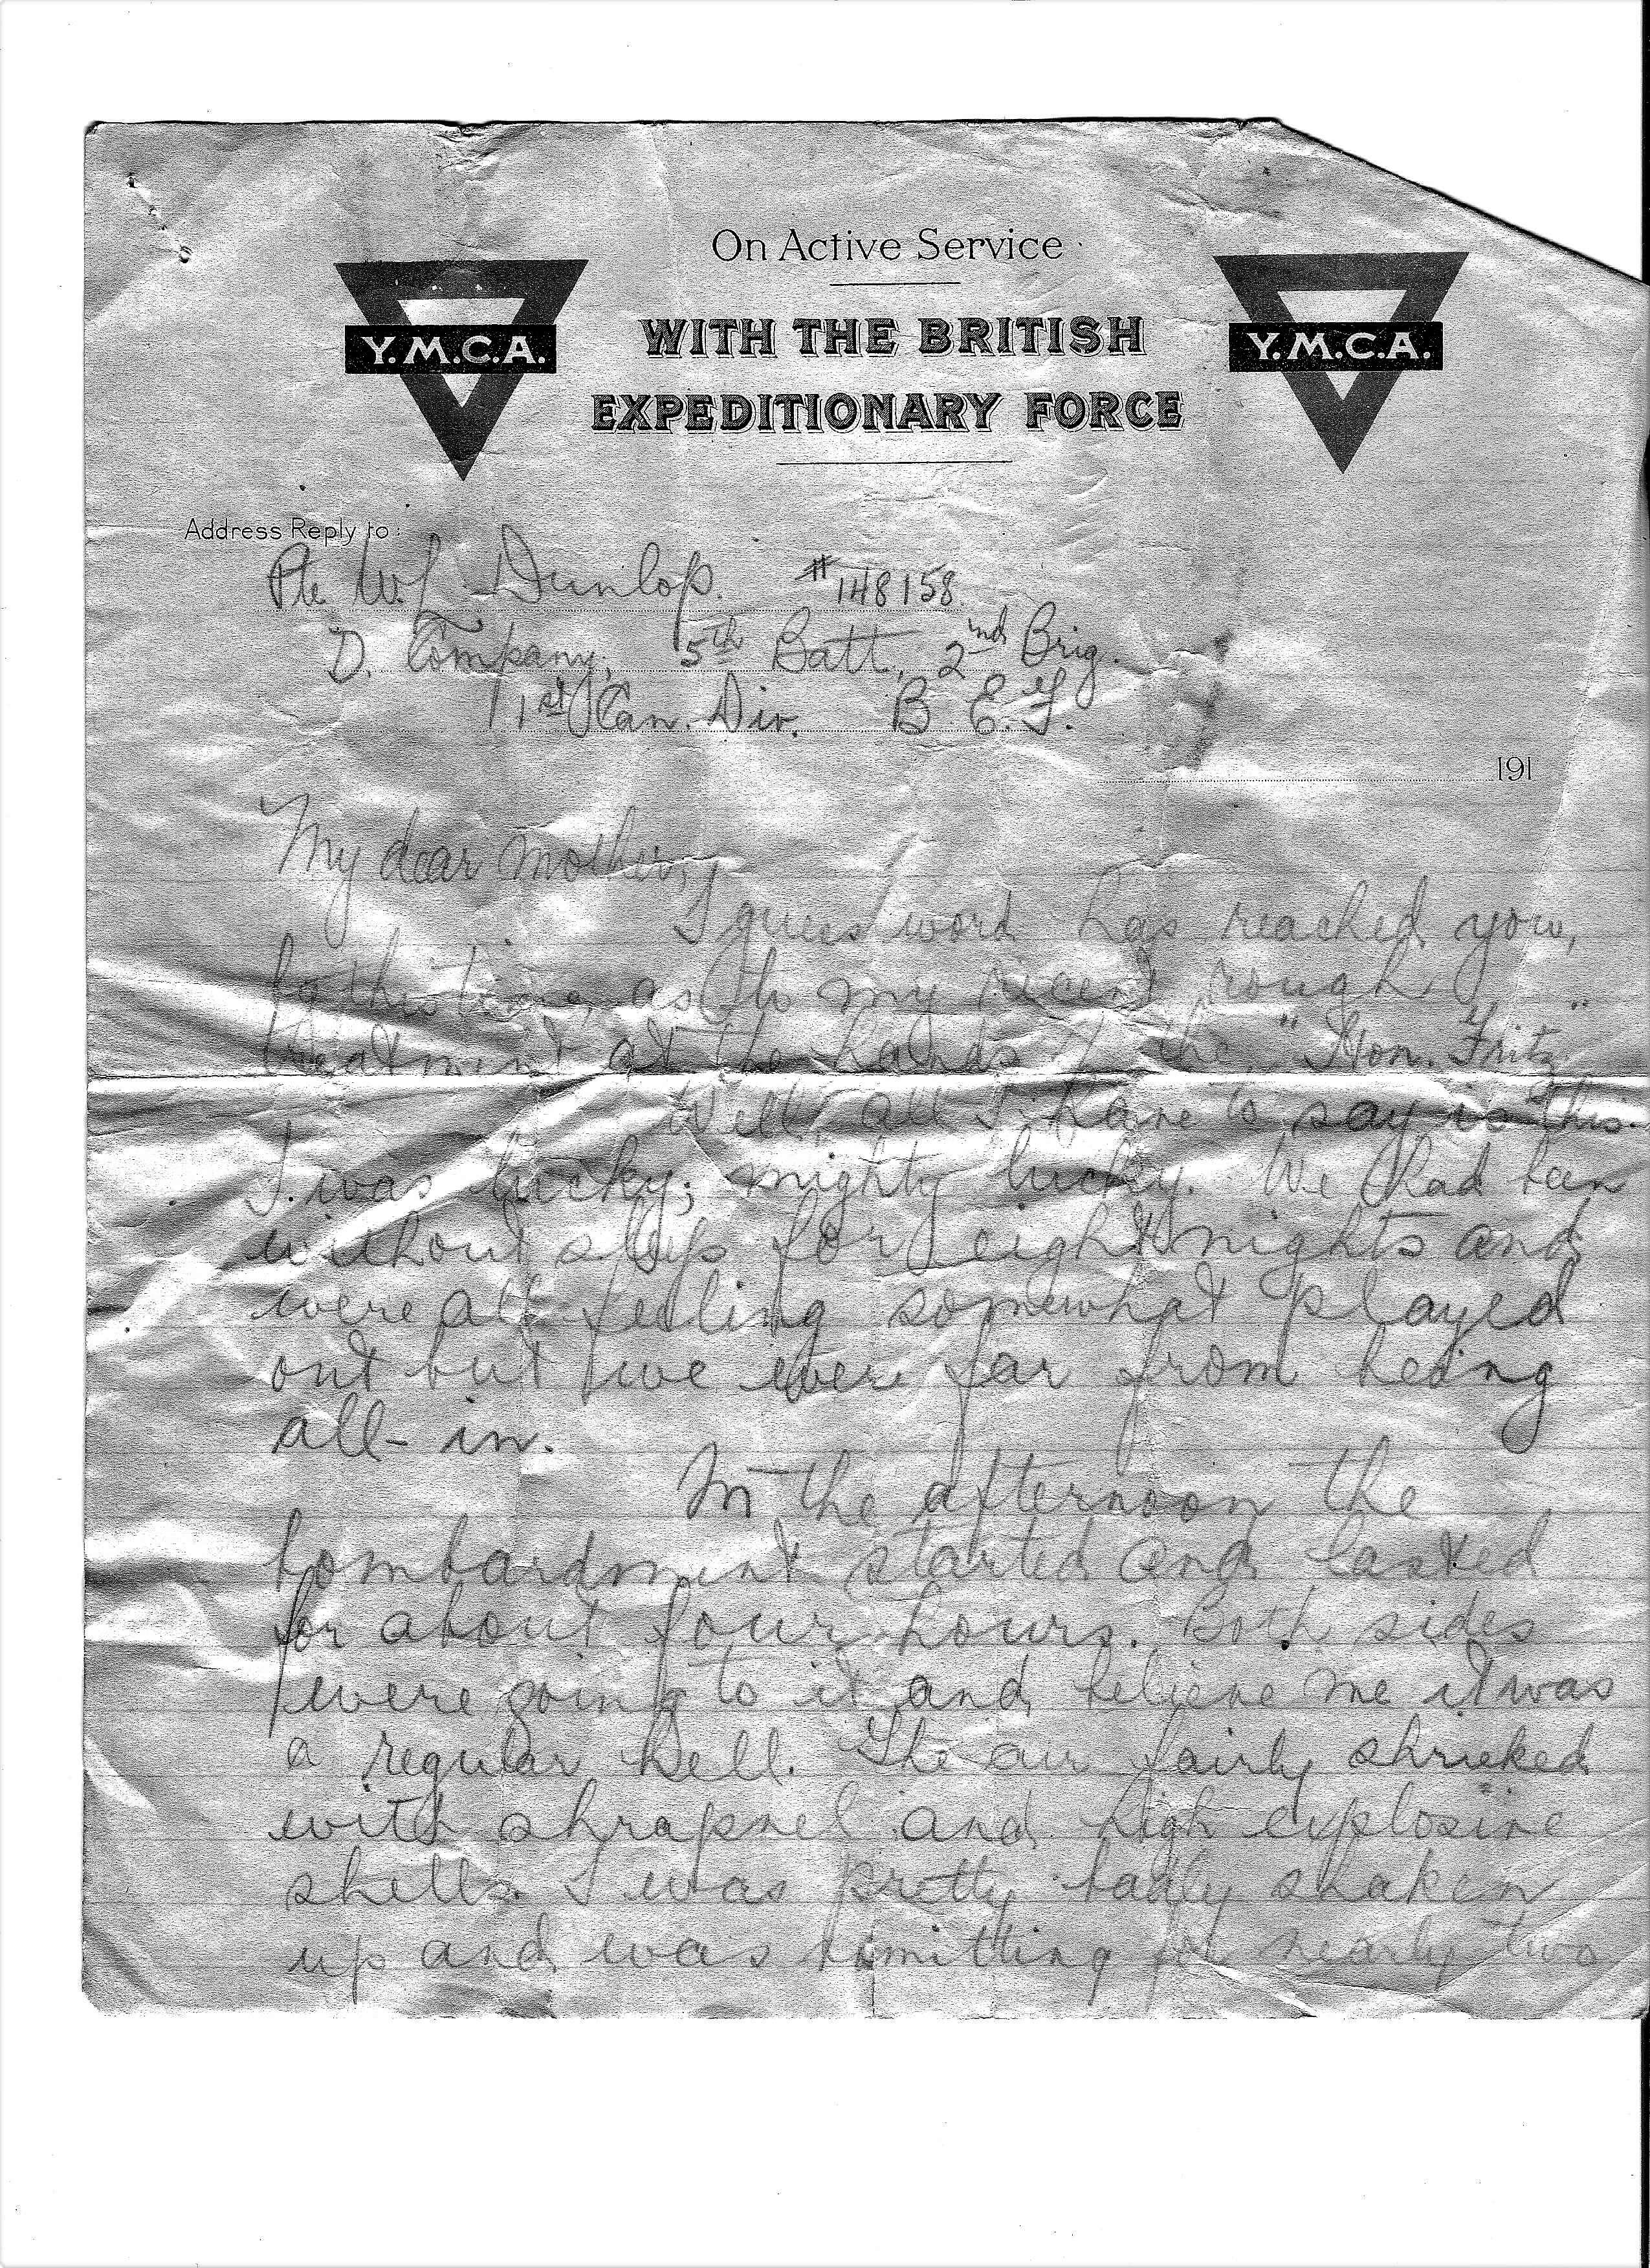 On Active Service
WITH THE BRITISH
EXPEDITIONARY FORCE
Y.M.C.A.
Y.M.C.A.
Address Reply to:
Pte W. J. Dunlop. #148158
D. Company, 5th Batt., 2nd Brig.
1st Can. Div. B E. F.
191
My dear Mother,
I guess word has reached you,
by this time, as to my recent rough
treatment at the hands of the "Hon. Fritz"
Well, all I have to say is this.
I was lucky; mighty lucky. We had been
without sleep for eight nights and
were all feeling somewhat played
out but we were far from being
all-in.
In the afternoon the
bombardment started and lasted
for about four hours. Both sides
were going to it and believe me it was
a regular hell. The air fairly shrieked
with shrapnel and high explosive
shells. I was pretty badly shaken
up and was vomitting for nearly two